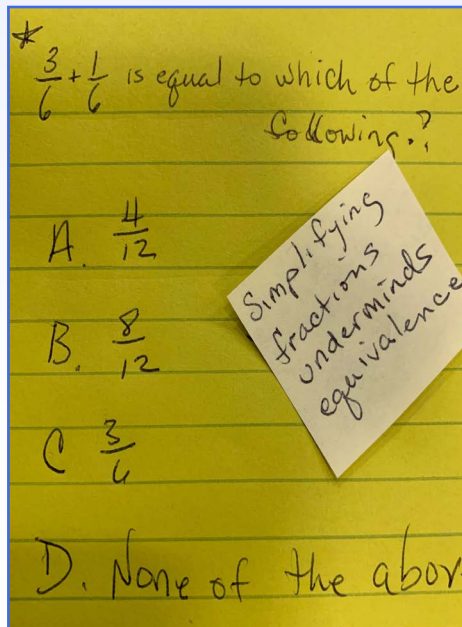 *
3/6 + 1/6 is equal to which of the
following.?
A. 4/12
B. 8/12
C 3/6
D. None of the above
Simplifying
fractions
underminds
equivalence